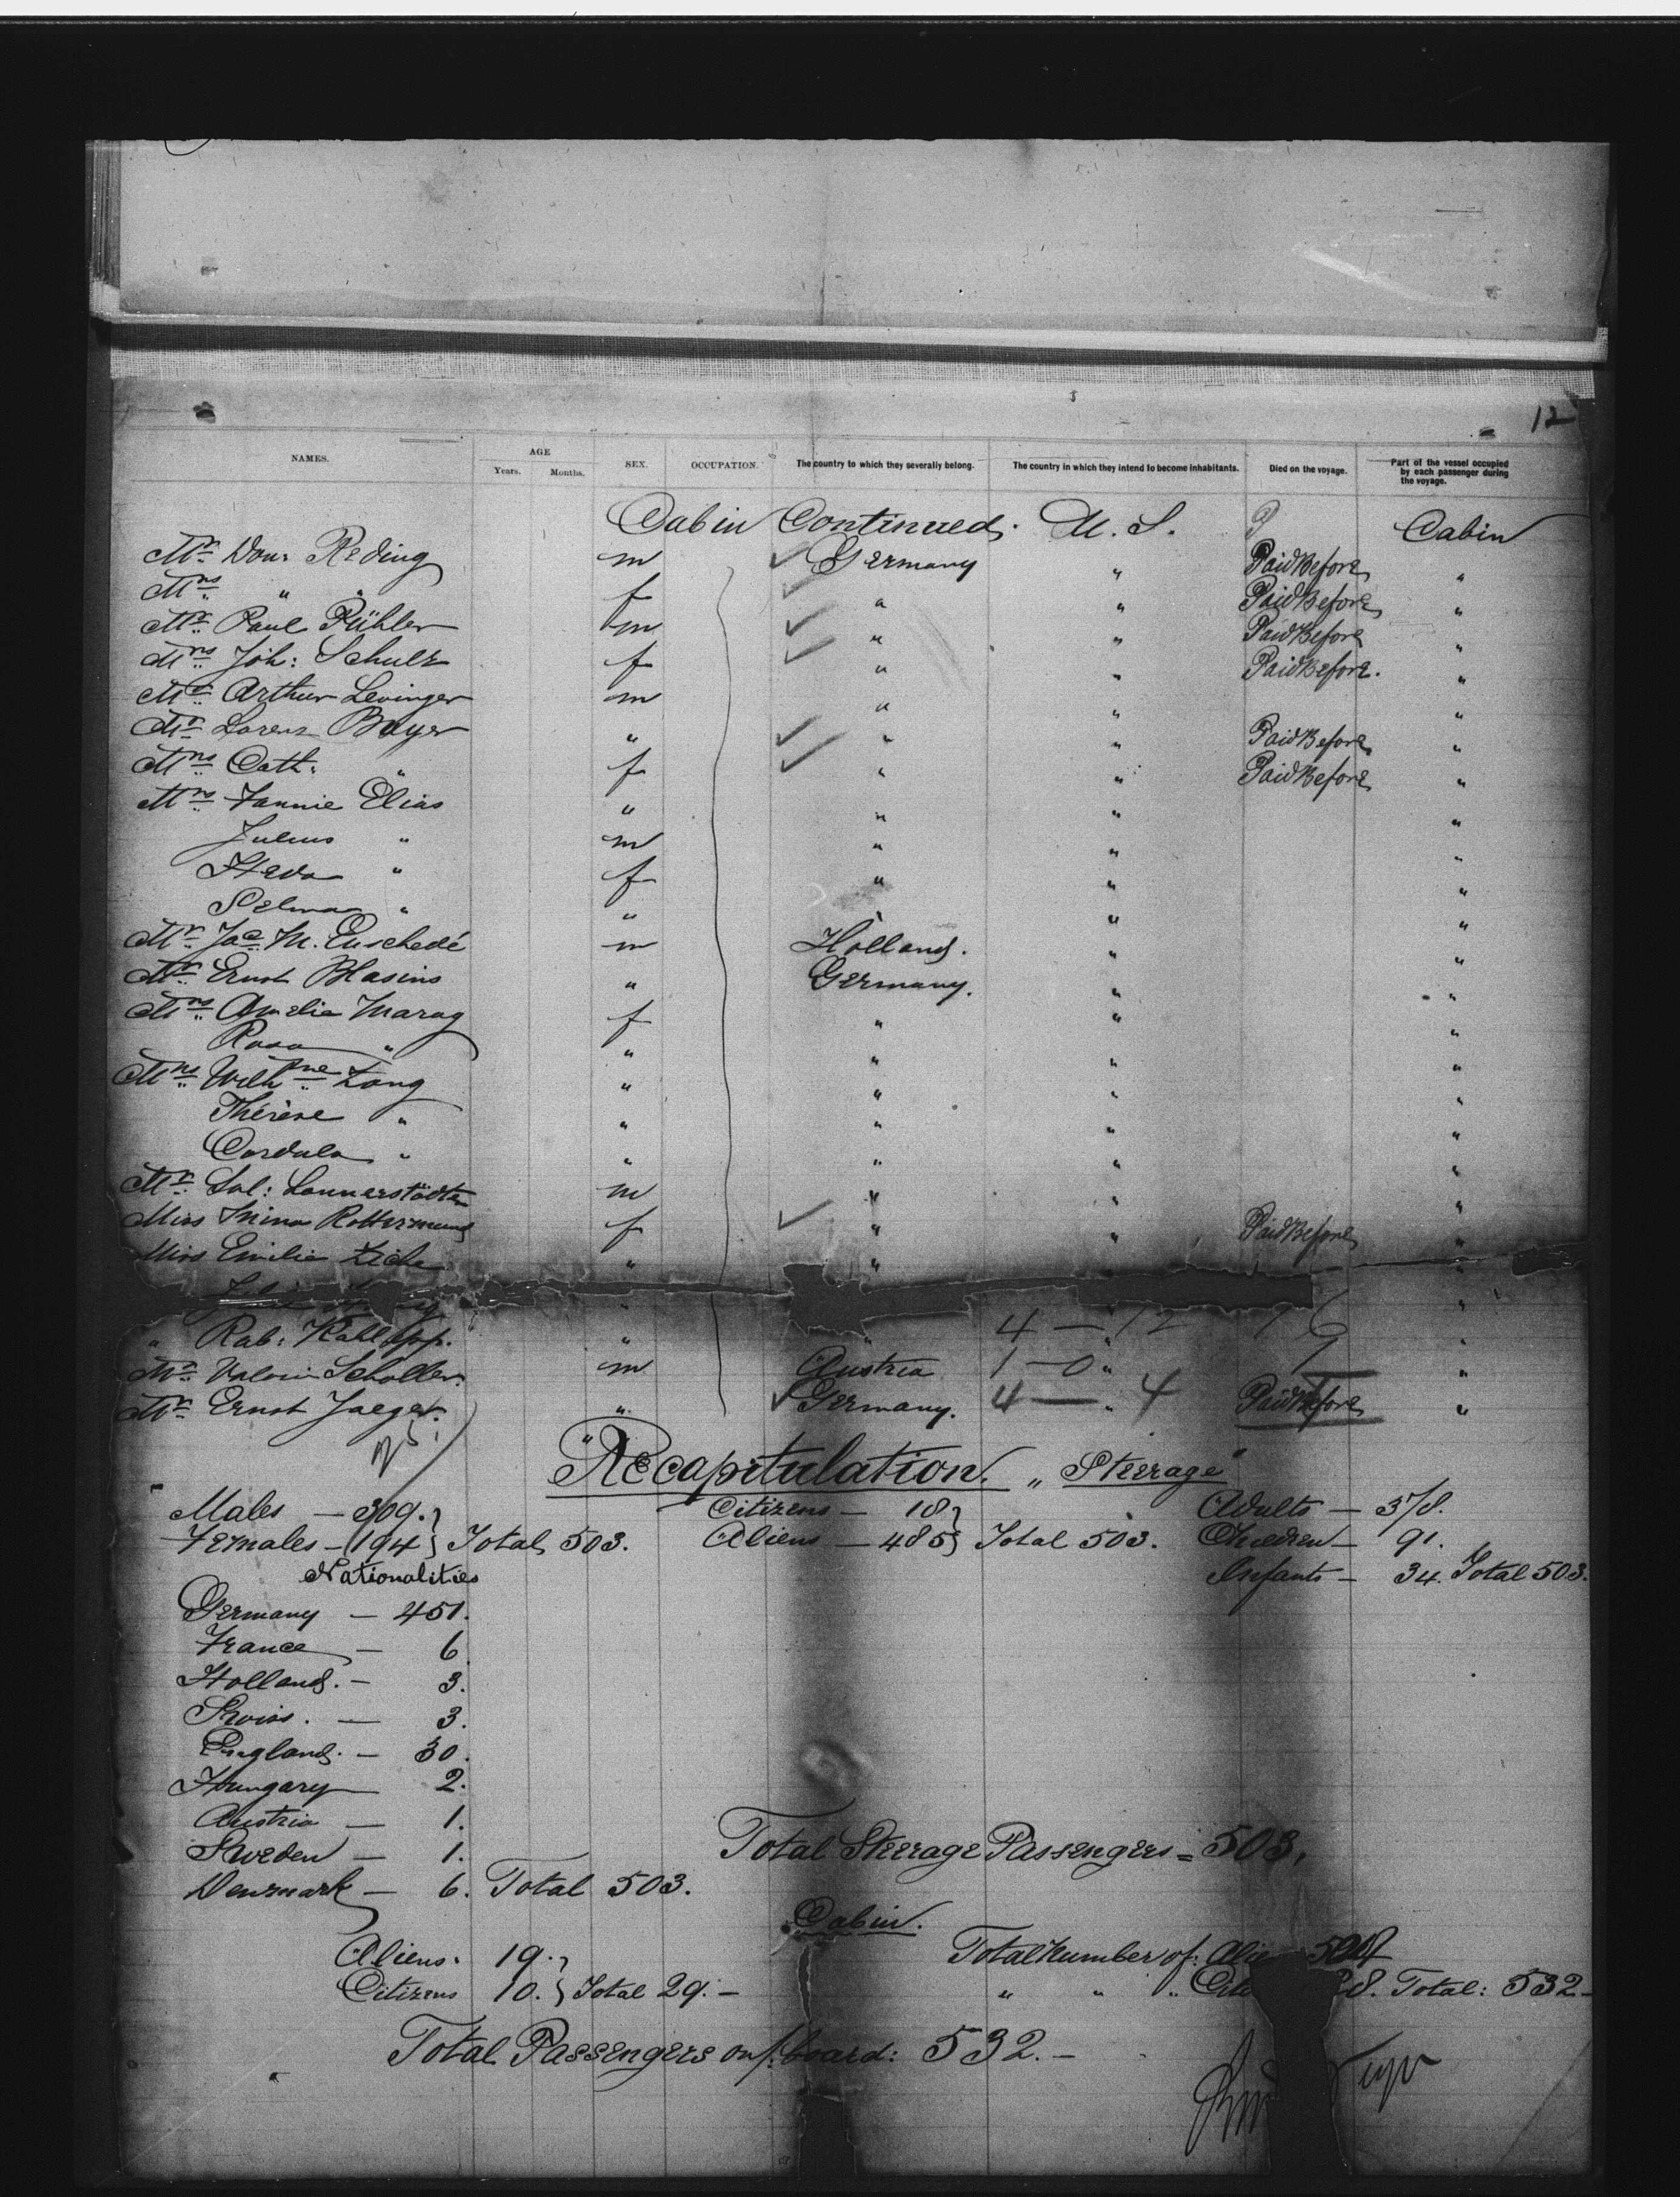 12
NAMES. AGE Years. Months. SEX. OCCUPATION. The country to which they severally belong. The country in which they intend to become inhabitants. Died on the voyage. Part of the vessel occupied by each passenger during the voyage.
Cabin Continued. U. S. Cabin
Mr Reding m ✓ Germany " Paid Before "
Mrs " " f ✓ " " Paid Before "
Mr Paul Rühler m ✓ " " Paid Before "
Mrs Joh: Schulz f ✓ " " Paid Before. "
Mr Arthur Levinger m " " "
Mr Lorenz Bayer " ✓ " " Paid Before "
Mrs Cath: " f ✓ " " Paid Before "
Mrs Fannie Elias " " " "
Julius " m " " "
Heda " f " " "
Selma " " " " "
Mr Jac M. Enschedé m Holland. " "
Mr Ernst Blasius " Germany. " "
Mrs Amelia Marag f " " "
Rosa " " " " "
Mrs Wilhne Lang " " " "
Thérèse " " " " "
Cordula " " " " "
Mr Sal: Lonnerstädter m " " "
Miss Mina Rottermund f ✓ " " Paid Before "
Miss Emilie " " "
" Rab: " " 4 — 12 "
Mr Scholler. m Austria 1 — 0 " "
Mr Ernst Jaeger. " ✓ Germany. 4 — " 4 Paid Before "
"Recapitulation. "Steerage"
Males — 309. Citizens — 18 Adults — 378.
Females — 194 } Total 503. Aliens — 485 } Total 503. Children — 91.
Nationalities Infants — 34. Total 503.
Germany — 451.
France — 6
Holland. — 3.
Swiss. — 3.
England. — 30.
Hungary 2.
Austria — 1.
Sweden — 1. Total Steerage Passengers = 503.
Denmark — 6. Total 503.
Cabin.
Aliens. 19. Total Number of: 504
Citizens 10. } Total 29. — " " " 28. Total: 532 —
Total Passengers on board: 532. —